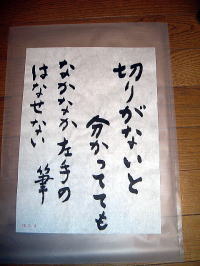 切りがないと
分かってても
なかなか左手の
はなせない 筆